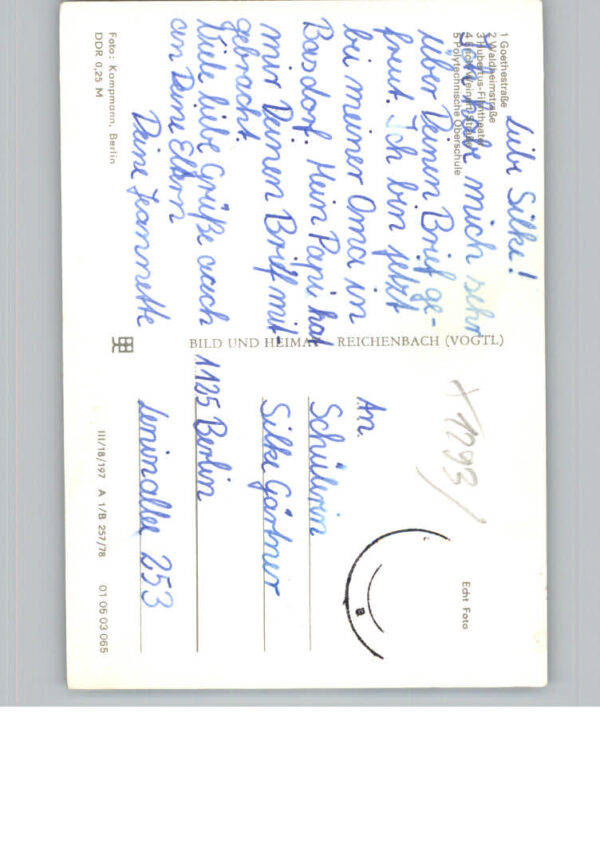 1 Goethestraße
2 Waldheimstraße
3 Hubertus-Filmtheater
4 Erich-Weinert-Straße
5 Polytechnische Oberschule
Liebe Silke!
Ich habe mich sehr
über Deinen Brief ge-
freut. Ich bin jetzt
bei meiner Oma in
Basdorf. Mein Papi hat
mir Deinen Brief mit-
gebracht.
Viele liebe Grüße auch
an Deine Eltern
Deine Jeannette
Foto: Kampmann, Berlin
DDR 0,25 M
BILD UND HEIMAT REICHENBACH (VOGTL)
X 1293/
Echt Foto
a
An
Schülerin
Silke Gärtner
1125 Berlin
Leninallee 253
III/18/197 A 1/B 257/78 01 05 03 065